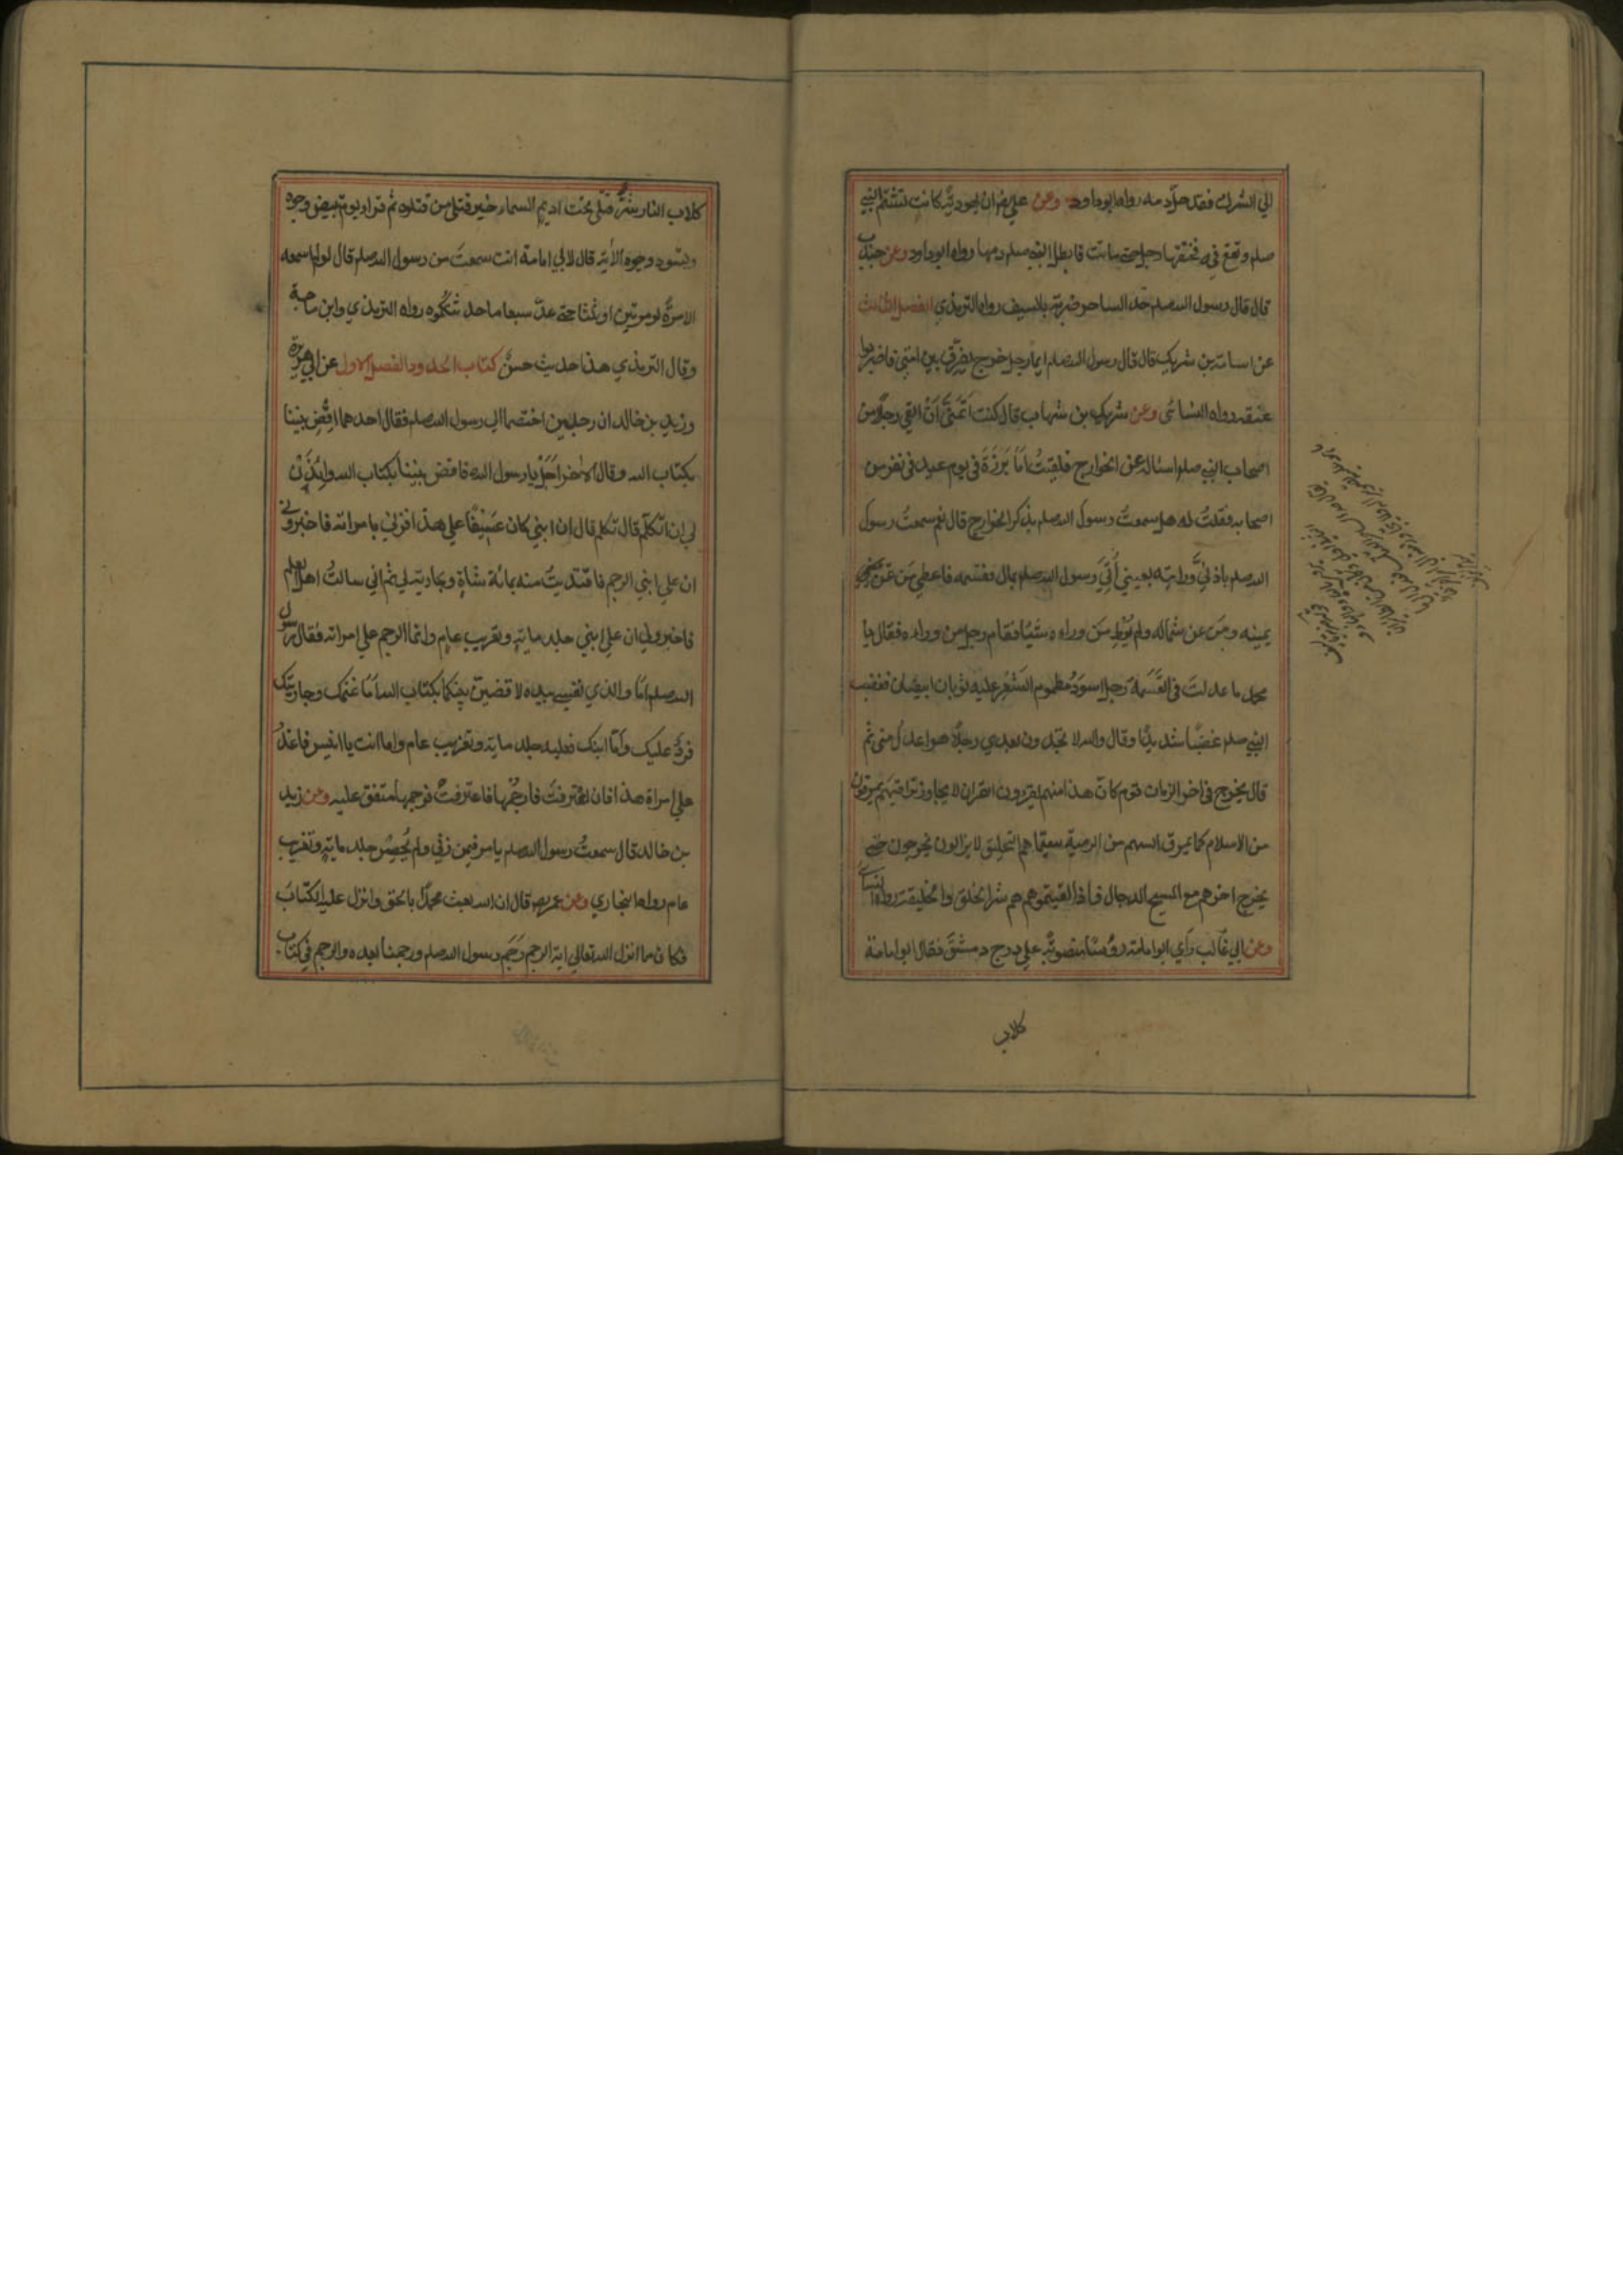 الي الشرك فقد حل دمه رواه ابوداود وعن علي رض ان يهودية كانت تشتم النبي
صلم وتقع فيه فخنقها رجل حتى ماتت فابطل النبي صلم دمها رواه ابوداود وعن جندب
قال قال رسول الله صلم حد الساحر ضربة بالسيف رواه الترمذي الفصل الثالث
عن اسامة بن شريك قال قال رسول الله صلم ايما رجل خرج يفرق بين امتي فاضربوا
عنقه رواه النسائى وعن شريك بن شهاب قال كنت اَتَمَنَّى اَنْ القى رجلًا من
اصحاب النبي صلم اسئاله عن الخوارج فلقيتُ اَبَا بَرزَةَ فى يوم عيد فى نفر من
اصحابه فقلتُ له هل سمعتَ رسول الله صلم يذكر الخوارج قال نعم سمعتُ رسول
الله صلم باذنيَّ ورايته بعيني اُتِيَ رسول الله صلم بمال فقسمه فاعطي مَن عن
يمينه ومَن عن شماله ولم يُعْطِ مَن وراءه شيئًا فقام رجل من وراءه فقال يا
محمد ما عدلتَ فى القَسْمَة رجل اسوَدُ مطموم الشَعَر عليه ثوبان ابيضان فغضب
النبي صلم غضبًا شديدًا وقال والله لا تجدون بعدي رجلًا هو اعدل منى ثم
قال يخرج فى اخر الزمان قوم كانّ هذا منهم يقرءون القران لا يجاوز تراقيهم يمرقون
من الاسلام كما يمرق السهم من الرمية سيماهم التحليق لا يزالون يخرجون حتى
يخرج اخرهم مع المسيح الدجال فاذا لقيتموهم هم شر الخلق والخليقة رواه النسائى
وعن ابي غالب رأي ابوامامة رؤسًا منصوبَةً على درج دمشق فقال ابوامامة
كلاب
كلاب النار شرُّ قتلى تحت اديم السماء خير قتلى من قتلوه ثم قرا يوم تبيض وجوه
وتسود وجوه الاية قال لابي امامة انت سمعتَ من رسول الله صلم قال لو لم اسمعه
الا مرَّةً او مرتين او ثلثا حتى عدَّ سبعا ما حدثتكموه رواه الترمذي وابن ماجة
وقال الترمذي هذا حديث حسنٌ كتاب الحدود الفصل الاول عن ابي هريرة
وزيد بن خالد ان رجلين اختصما الي رسول الله صلم فقال احدهما اقْضِ بيننا
بكتاب الله وقال الاخر اَجَلْ يا رسول الله فاقض بيننا بكتاب الله وائْذَنْ
لي ان اتكلّم قال تكلم قال ان ابني كان عَسِيفًا علي هذا فزني بامراته فاخبروني
ان علي ابني الرجم فافتديتُ منه بمائة شاةٍ وبجارية لي ثم اني سالتُ اهل العلم
فاخبروني ان علي ابني جلد ماية وتغريب عام وانما الرجم علي امراته فقال رسول
الله صلم اَما والذي نفسي بيده لاقضين بينكما بكتاب الله اَمّا غنمك وجاريتك
فردٌّ عليك واَمّا ابنك فعليه جلد ماية وتغريب عام واما انت يا انيس فاغدُ
علي امراة هذا فان اعترفت فارجُمْها فاعترفتْ فرجمها متفق عليه وعن زيد
بن خالد قال سمعتُ رسول الله صلم يامر فيمن زني ولم يُحصِنْ جلد ماية وتغريب
عام رواه البخاري وعن عمر رض قال ان الله بعث محمدًا بالحق وانزل عليه الكتابَ
فكان مما انزل الله تعالي اية الرجم رَجَم رسول الله صلم ورجمنا بعده والرجم فى كتاب